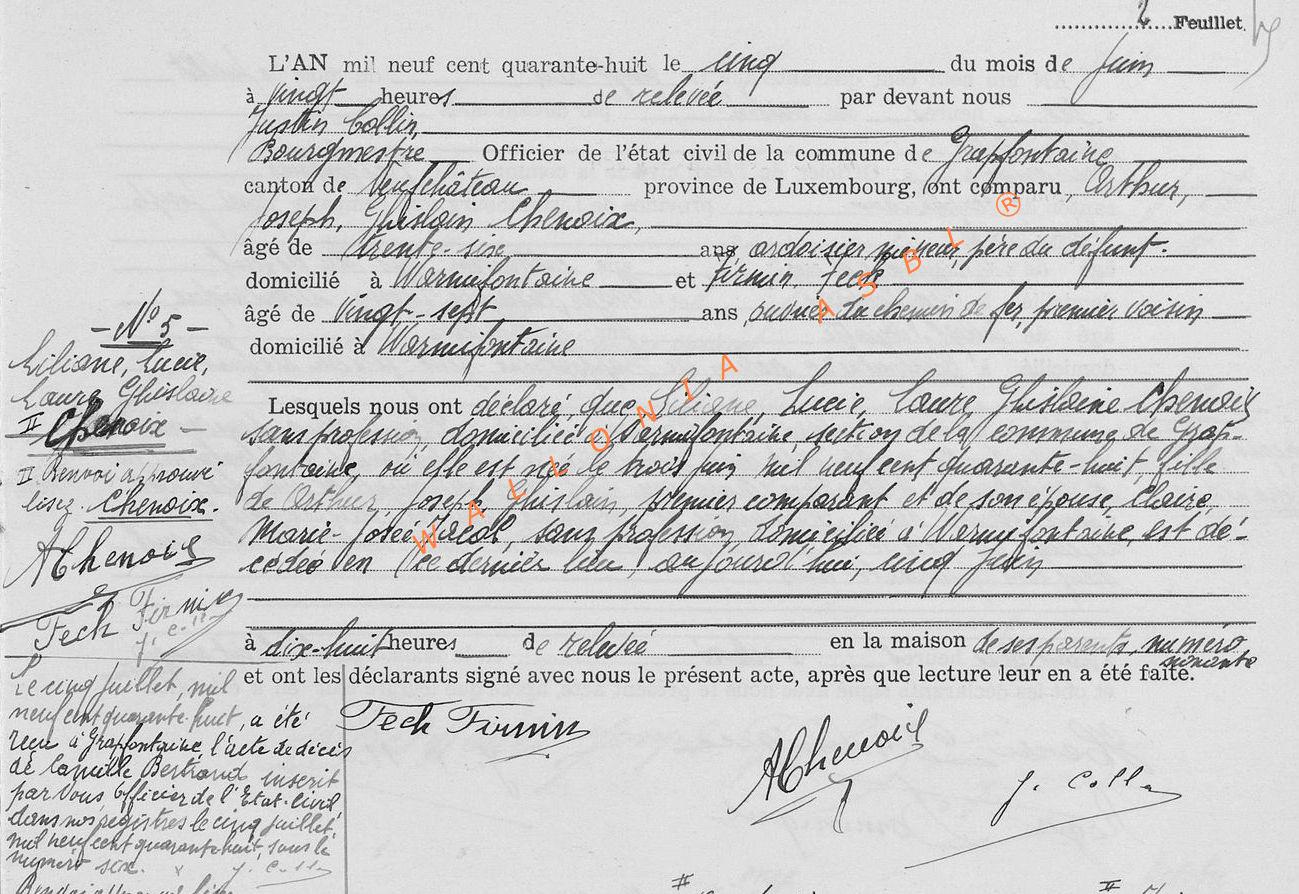 2 Feuillet
L'AN mil neuf cent quarante-huit le cinq du mois de juin
à vingt heures de relevée par devant nous
Justin Collin,
Bourgmestre Officier de l'état civil de la commune de Grapfontaine
canton de Neufchâteau province de Luxembourg, ont comparu, Arthur,
Joseph, Ghislain Chenoix,
âgé de trente-six ans ardoisier mineur père du défunt.
domicilié à Warmifontaine et Firmin, Fech
âgé de vingt-sept ans, ouvrier du chemin de fer, premier voisin
domicilié à Warmifontaine
Lesquels nous ont déclaré, que Liliane, Lucie, Laure, Ghislaine Chenoix
sans profession, domiciliée à Warmifontaine, section de la commune de Grap-
fontaine, où elle est née le trois juin mil neuf cent quarante-huit, fille
de Arthur, Joseph, Ghislain, premier comparant et de son épouse, Claire,
Marie-Josée Jacob, sans profession domiciliée à Warmifontaine, est dé-
cédée en ce dernier lieu, aujourd'hui, cinq juin
à dix-huit heures de relevée en la maison de ses parents, numéro
et ont les déclarants signé avec nous le présent acte, après que lecture leur en a été faite.
Fech Firmin
AChenoix
J. Collin
- N° 5 -
Liliane, Lucie,
Laure Ghislaine
II Chenoix -
II Renvoi approuvé
lisez Chenoix.
AChenoix
Fech Firmin
J. Collin
Le cinq juillet, mil
neuf cent quarante-huit, a été
reçu à Grapfontaine l'acte de décès
de Camille Bertrand inscrit
par Nous Officier de l'Etat-Civil
dans nos registres le cinq juillet,
mil neuf cent quarante huit, sous le
numéro six. J. Collin
WALLONIA ASBL ®